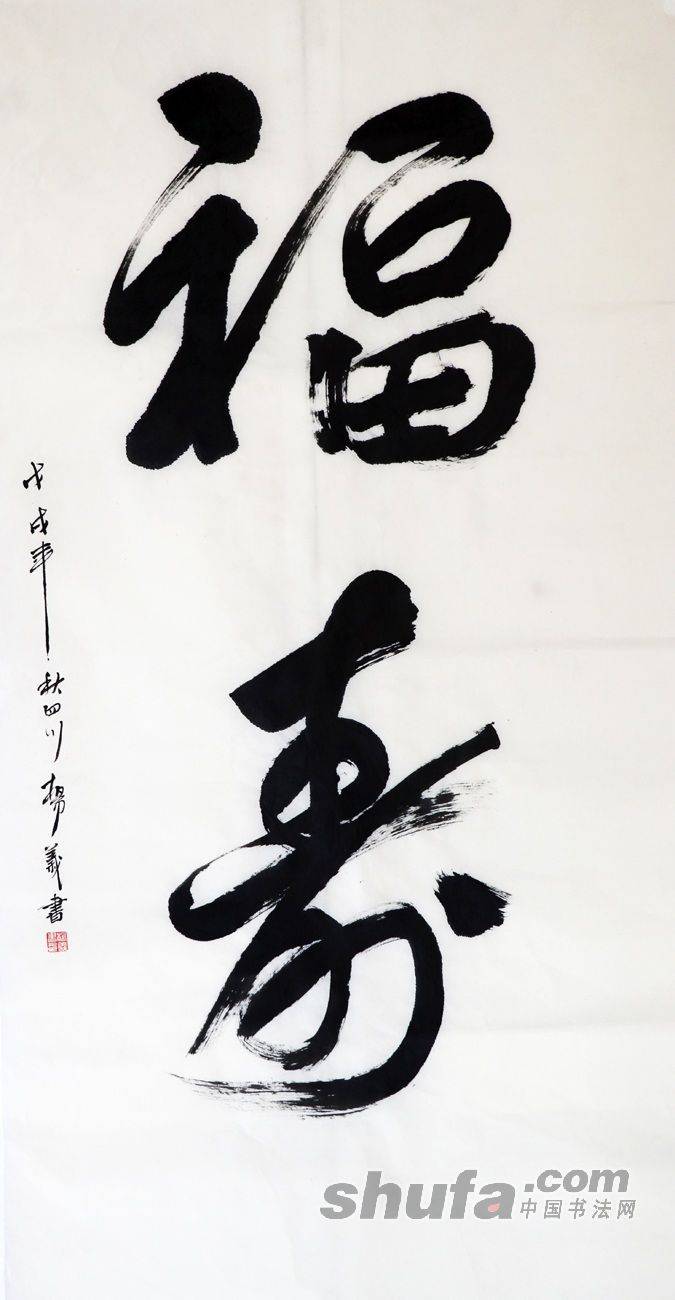 福寿
戊戌年秋四川杨义書
shufa.com
中国书法网